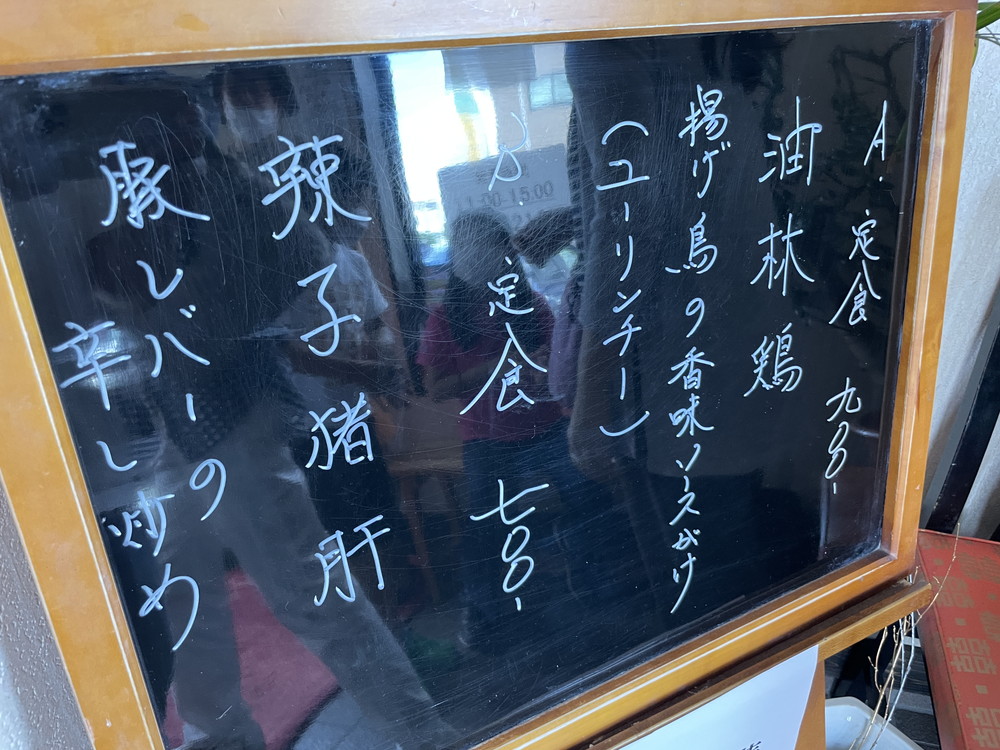 A. 定食 九〇〇-
油淋鶏
揚げ鳥の香味ソースがけ
(ユーリンチー)
B. 定食 七〇〇-
辣子猪肝
豚レバーの
辛し炒め